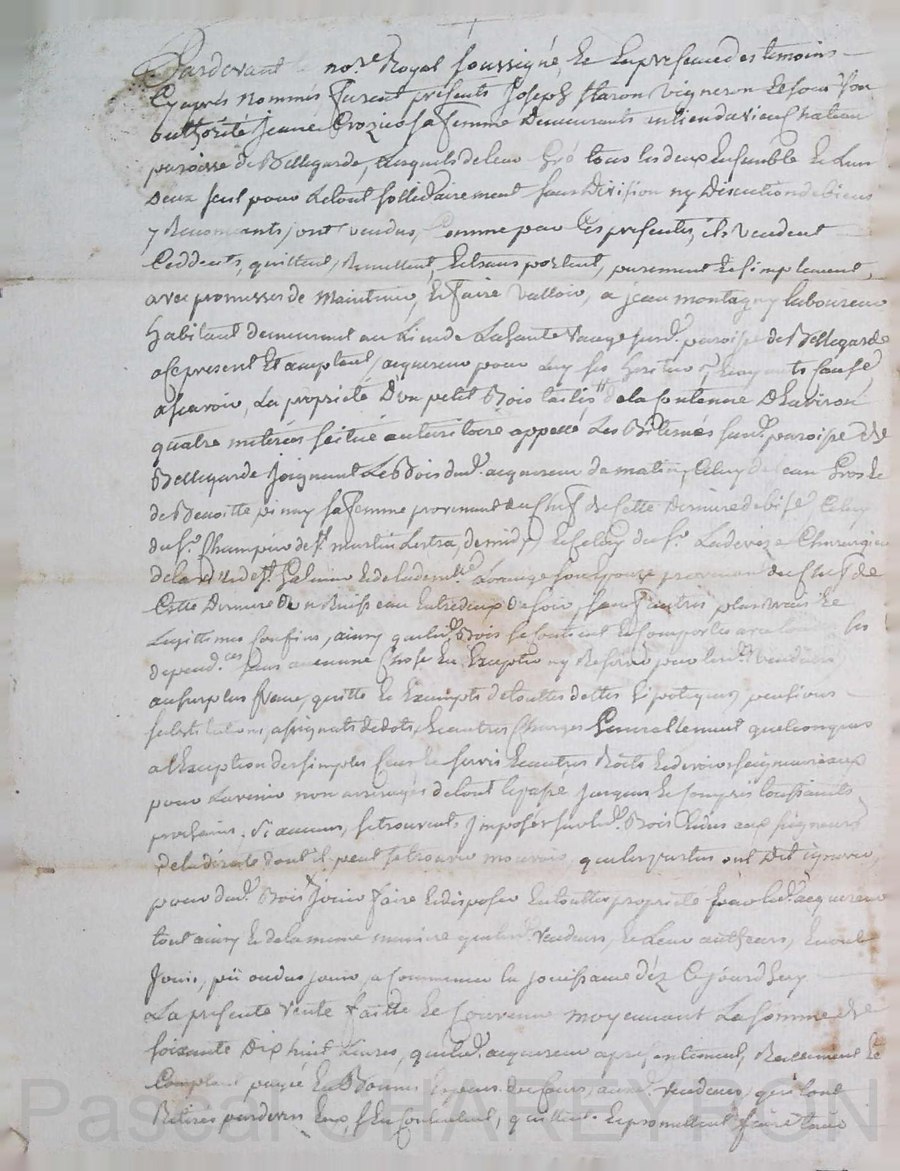 Pardevant le no.re Royal soussigné, Et En presence des temoins
Cy aprés Nommés furent présents Joseph Staron vigneron Et sous son
authorité jeanne Crozier sa femme Demeurants au lieu du vieux Chateau
paroisse de Bellegarde, lesquels de leur Gré tous les deux Ensemble Et L'un
Deux seul pour Letout sollidairement sans Division ny Discution de biens
y Renonceants, ont vendus, Comme par Ces presentes, ils vendent
Ceddents, quittent, Remettent, Et transportent, purement Et simplement,
avec promesses de Maintenir, Et faire Valloir, a jean montagny laboureur
habitant demeurant au Lieu de La sauvage susd. paroisse de Bellegarde
acy present Et acceptant, acquereur pour Luy ses heritiers, Et ayants cause
ascavoir, La proprieté D'un petit Bois taillis de la contenue D'Environ
quatre meterées scitué au territoire appellé Les susd. paroisse de
Bellegarde joignant Le Bois dud. acquereur de matin, Celuy de jean Gros Et
de Benoitte pinay sa femme provenant du Chef de Cette Derniere de bise, Celuy
du sr. Champier de st. martin Lestra, de midy, Et Celuy du sr. Ladeveze Chirurgien
de la ville de st. Galmier Et de la dem.lle provenant du Chef de
Cette Derniere un Ruisseau Entredeux de soir, sauf autres plus vrais Et
Legittimes Confins, ainsy que led. Bois se Contient Et Comporte avec tous ses
depend.ces sans aucune Chose En Excepter ny Reserver pour lesd. vendeurs,
au surplus franc, quitte Et Exempts de toutes dettes hipoteques, pensions
substitutions, assignats de dots, Et autres Charges Generallement quelconques
a l'Exception des simples Cens Et servis Et autres Droits Et devoirs seigneuriaux
pour L'avenir non arrerages de tout le passé jusques Et Compris toussaints
prochains, si aucuns, se trouvent imposés sur led. Bois dues aux seigneurs
de la directe dont il peut se trouver mouvoir, que les parties ont Dit ignorer,
pour dud. Bois jouir faire Et disposer En toutte proprieté par led. acquereur
tout ainsy Et de la meme maniere que lesd. Vendeurs, Et Leur autheurs, En ont
Joüi, pû ou dus jouir, a Commencer la jouissance déz Cejourdhuy
La presente Vente faitte Et Convenue moyennant La somme de
soixante Dix huit Livres, que led. acquereur a presentement, Reellement Et
Comptant payée En Bonnes Especes de Cours, auxd. Vendeurs, qui L'ont
Retirée pardevers Eux s'En Contentent, quittent Et promettent faire tenir
Pascal CHAREYRON